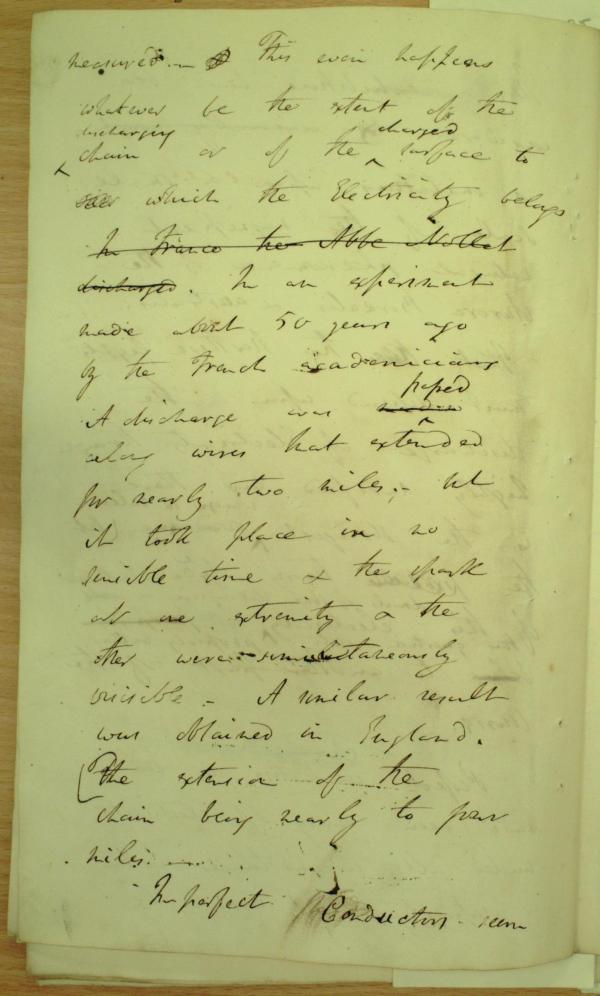 measured. — This even happens
whatever be the extent of the
discharging charged
chain or of the surface to
which the Electricity belongs
In France the Abbe Nollet
discharged. In an experiment
made about 50 years ago
by the French academicians
passed
A discharge was made
along wires that extended
for nearly two miles, — but
it took place in no
sensible time & the spark
at one extremity & the
other were simultaneously
visible — A similar result
was obtained in England.
(The extension of the
chain being nearly to four
miles. —
Imperfect Conductors seem